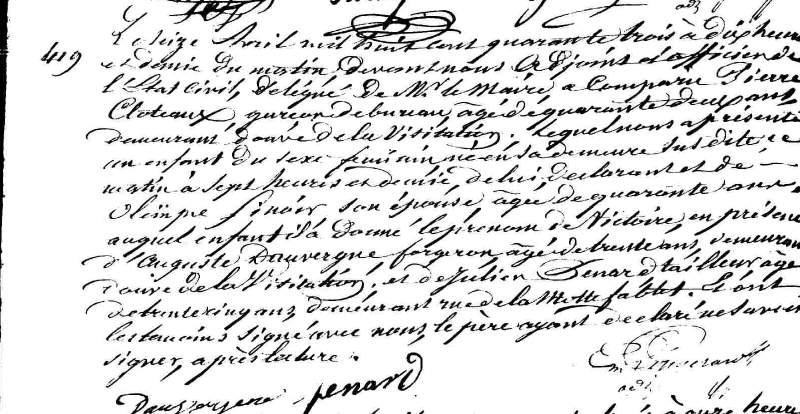 419
Le Seize Avril mil huit cent quarante trois à dix heures
et demie du matin, devant nous Adjoint et officier de
l'Etat Civil, délégué de Mr le Maire, a Comparu Pierre
Cloteaux garçon de bureau, âgé de quarante deux ans,
demeurant douve de la Visitation. Lequel nous a présenté
un enfant du sexe féminin né en sa demeure sus dite, ce
matin à sept heures et demie, de lui, déclarant et de
Olimpe son épouse âgée de quarante ans
auquel enfant il a donné le prénom de Victoire, en présence
d'Auguste Dauvergne forgeron âgé de trente ans, demeurant
douve de la Visitation, et de Julien Penard tailleur âgé
de trente cinq ans, demeurant rue de la Motte fablet. Et ont
les témoins signé avec nous, le père ayant déclaré ne savoir
signer, après lecture.
Dauvergne penard
adj